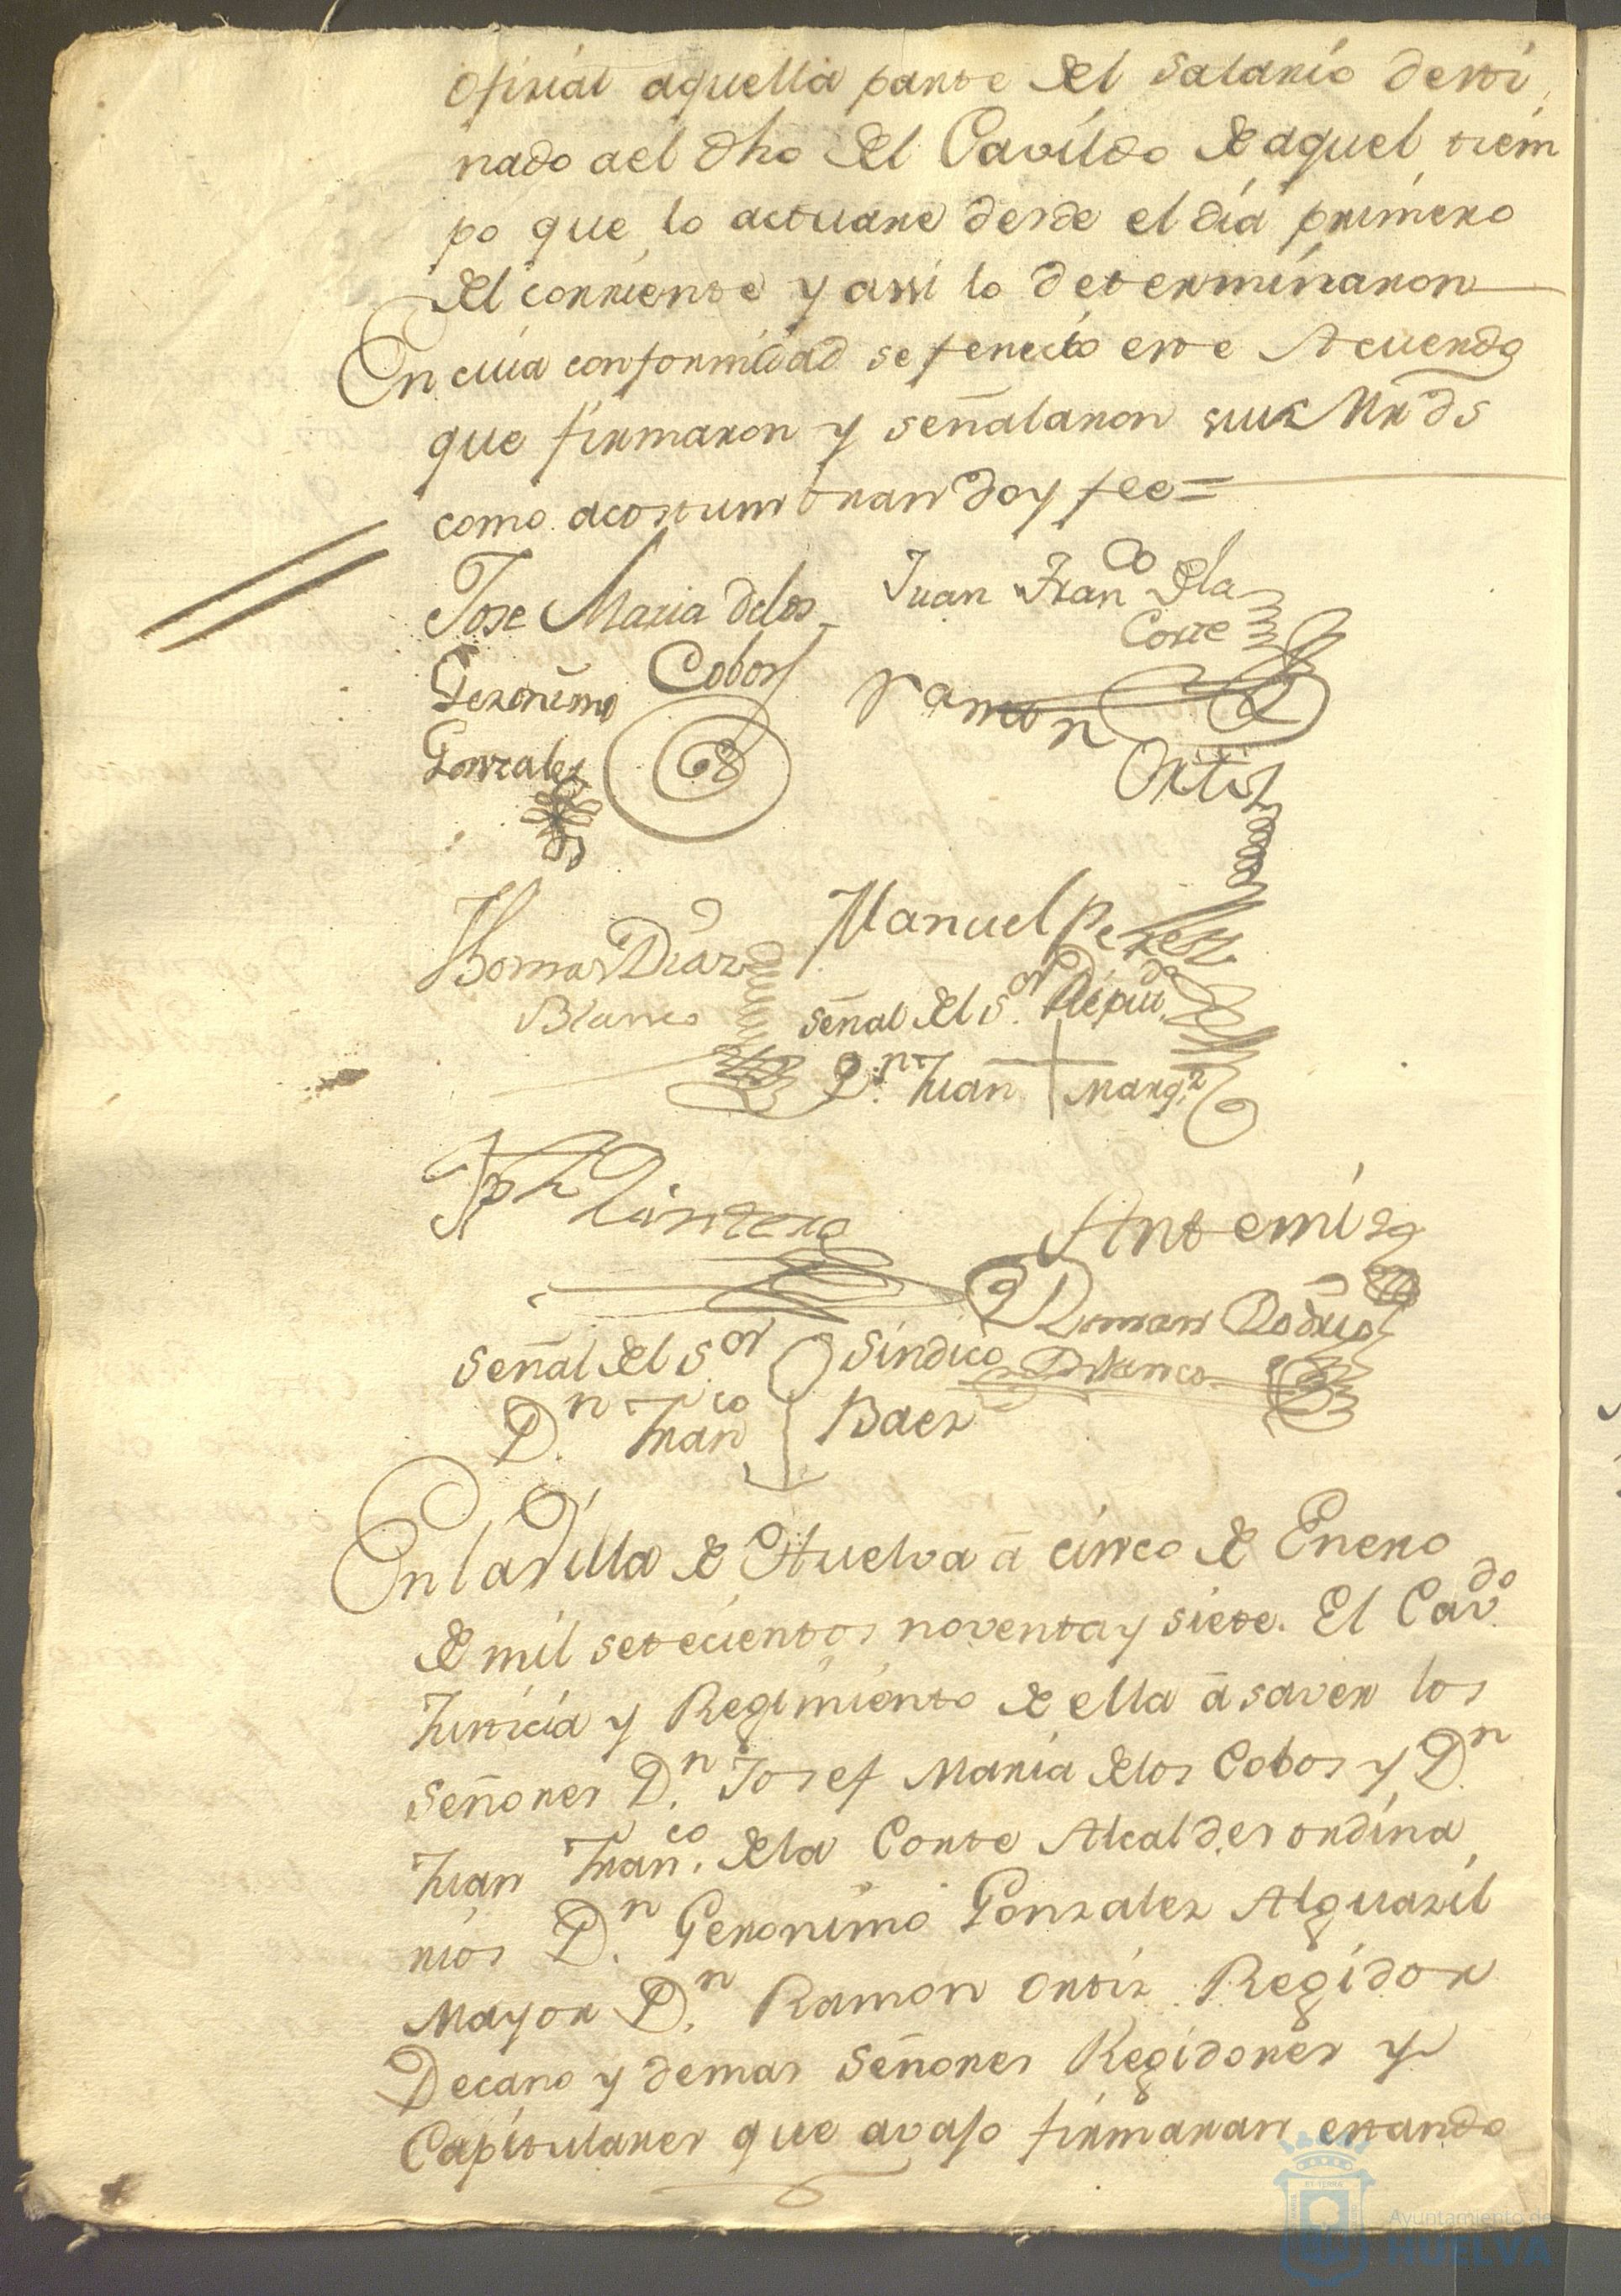 oficial aquella parte del salario desti
nado a el dho del Cavildo de aquel tiem
po que lo actuare desde el dia primero
del corriente y assi lo determinaron
En cuia conformidad se fenecio este Acuerdo
que firmaron y señalaron sus Mrds
como acostumbran doy fee =
Jose Maria delos
Cobos
Juan Franco dela
Corte
Geronimo
Gonzalez
Ramon
Ortis
Thomas Diaz
Blanco
Manuel Perez
señal del Sor Dipudo
Dn Juan Marqz
Jph Quintero
Antemi
Roman Rodrio
Blanco
señal del Sor Sindico
Dn Franco Baez
En la Villa de Huelva â cinco de Enero
de mil setecientos noventa y siete. El Cavdo
Justicia y Regimiento de ella â saver los
señores Dn Josef Maria delos Cobos y Dn
Juan Franco dela Corte Alcaldes ordina
rios Dn Geronimo Gonzalez Alguazil
Mayor Dn Ramon Ortiz Regidor
Decano y demas Señores Regidores y
Capitulares que avajo firmaran estando
Ayuntamiento de
HUELVA